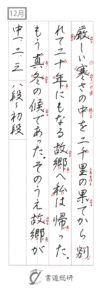 12月
厳しい寒さの中を二千里の果てから別
れて二十年にもなる故郷へ私は帰った。
もう真冬の候であった。そのうえ故郷が
中一二三 八段〜初段
書道総研